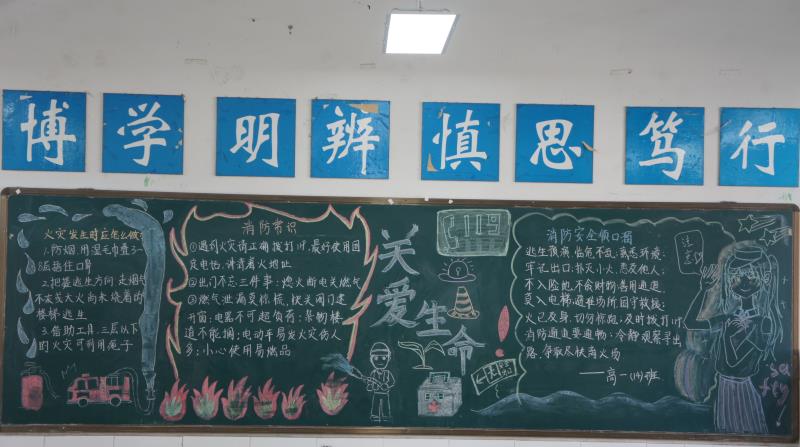 博学明辨慎思笃行
火灾发生时应怎么做
1.防烟,用湿毛巾叠3—
8层捂住口鼻
2.把握逃生方向
楼梯逃生
3.借助工具,三层以下
的火灾可利用绳子
消防常识
①遇到火灾请正确拨打119,最好使用固
②出门不忘三件事:
燃火断电关燃气
③燃气泄漏莫惊慌,
开窗;电器不可超负荷;杂物楼
道不能搁;电动车易发火灾伤人
多;小心使用易燃品
关爱生命
119
消防安全顺口溜
逃生预演,临危不乱;熟悉环境,
牢记出口;扑灭小火,惠及他人;
不入险地,不贪财物;善用通道,
莫入电梯;避难场所,固守救援;
火已及身,切勿惊跑;及时拨打119
消防通道要通畅;冷静观察寻出
路,争取尽快离火场
——高一(14)班
注意
safety